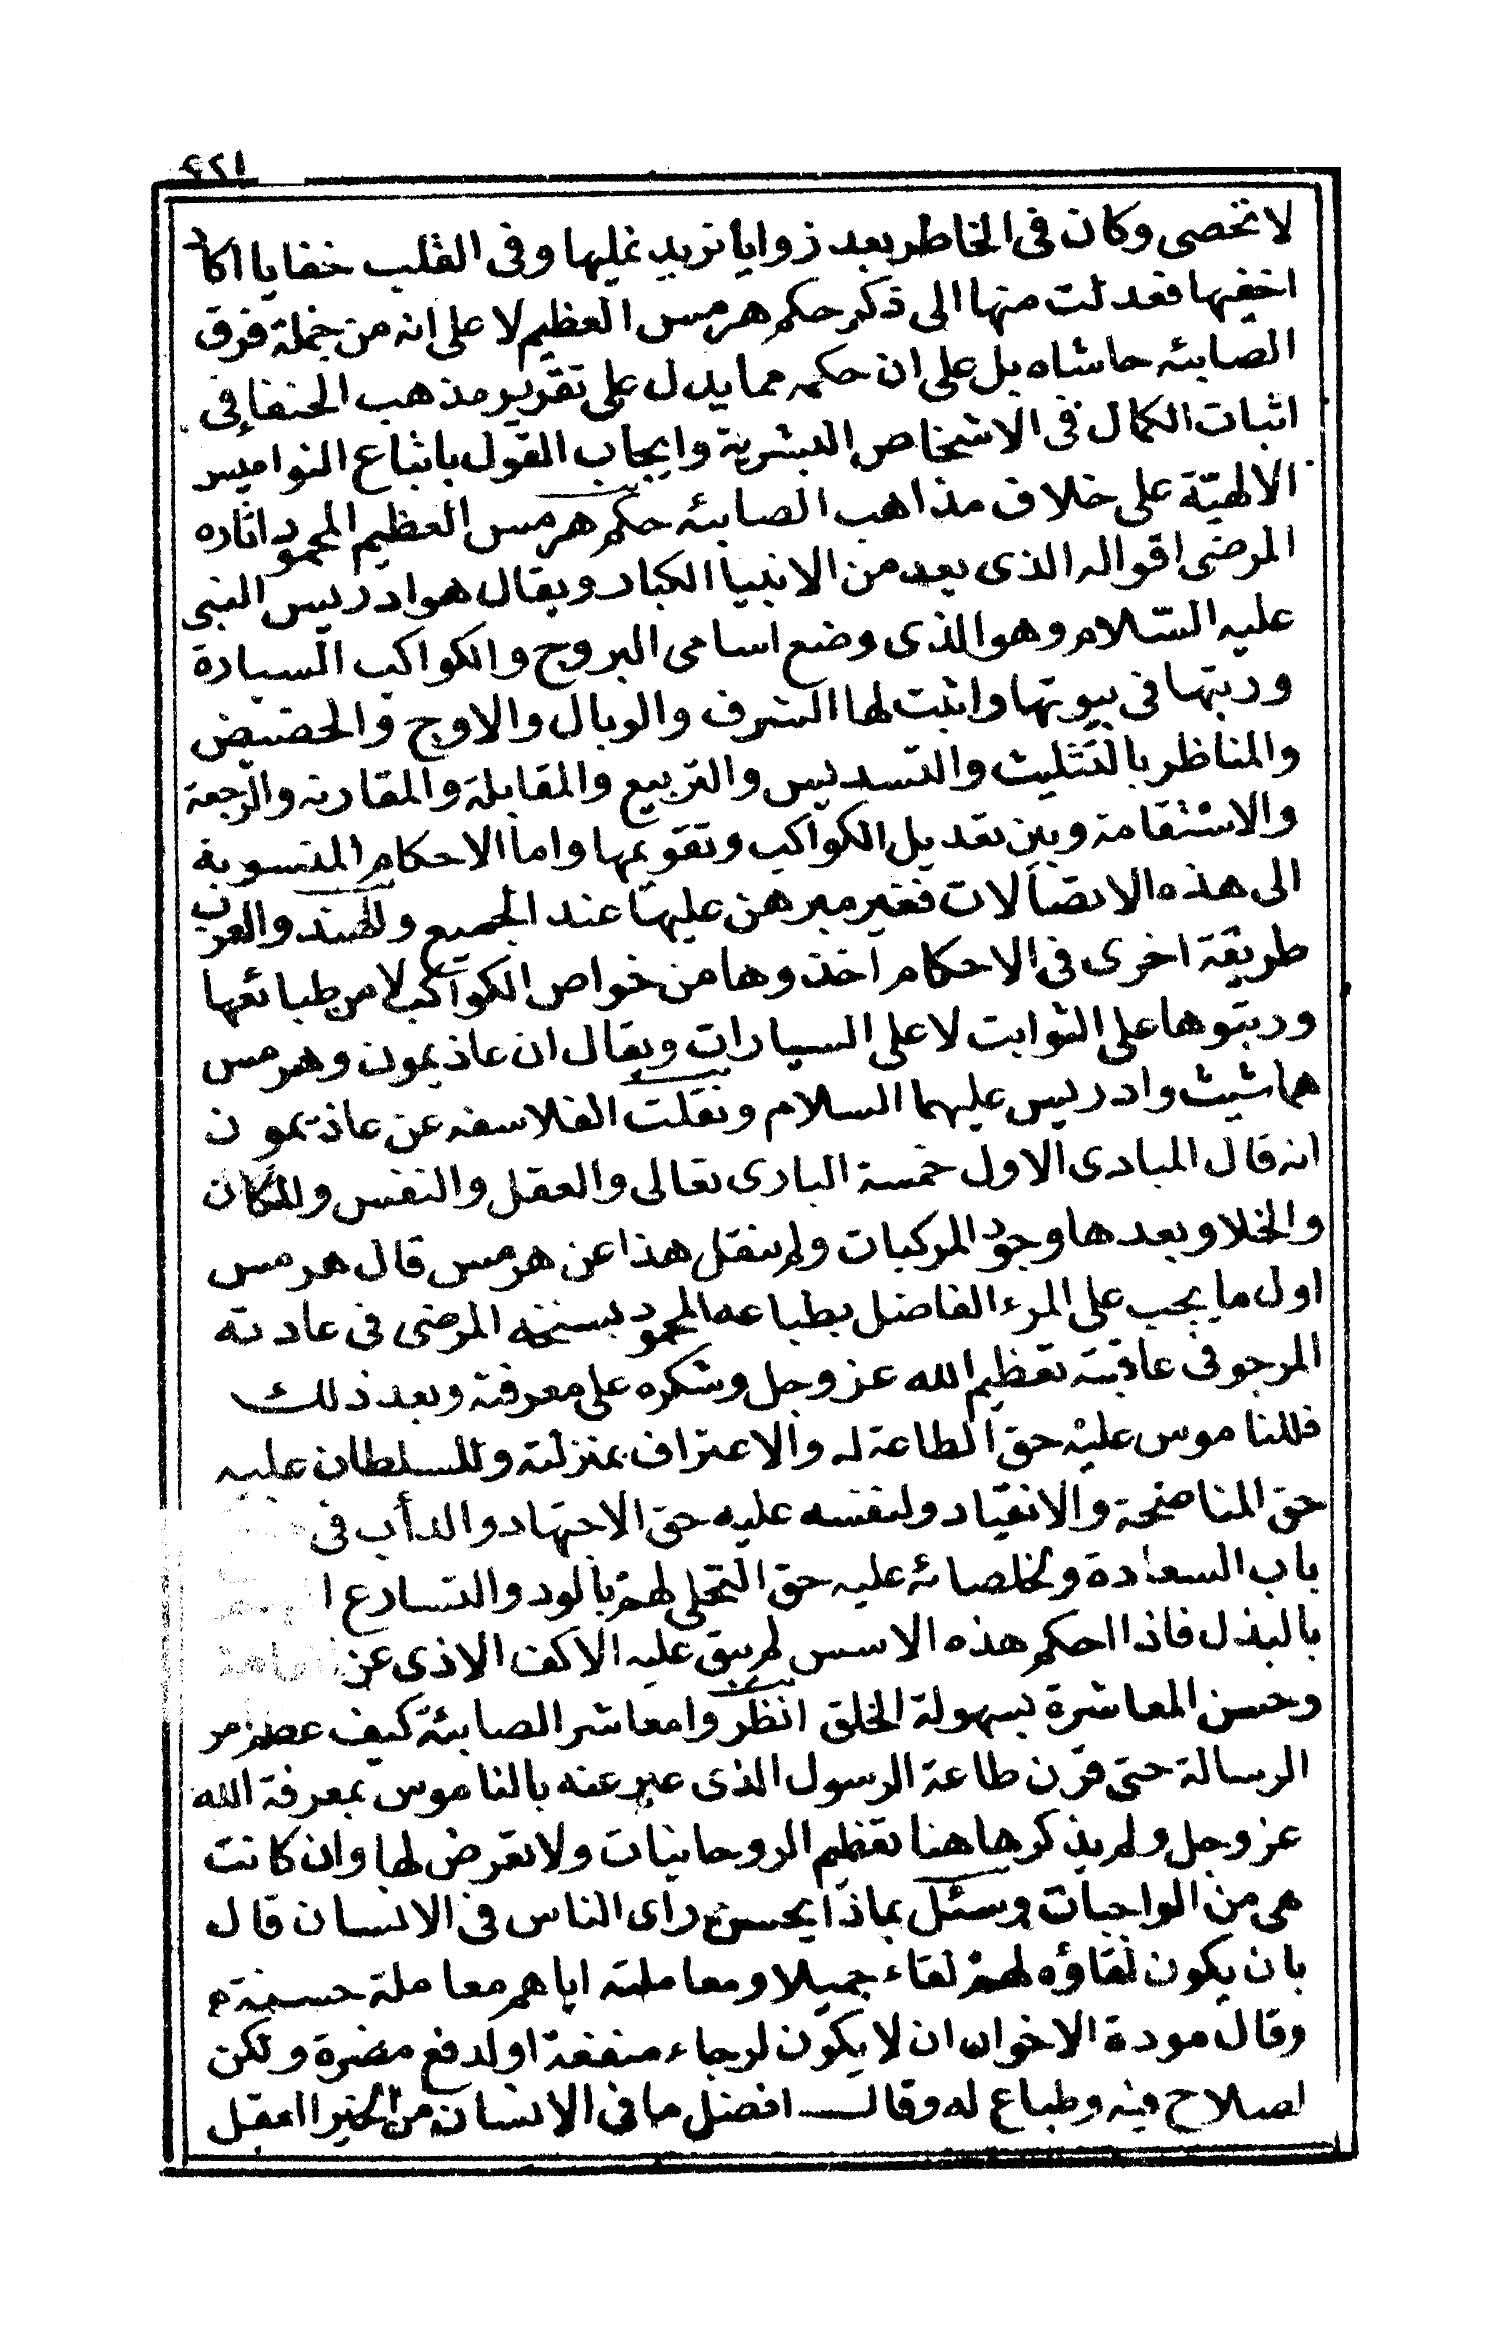 ١٢٢
لا تحصى وكان فى الخاطر بعد زوايا نريد نمليها وفى القلب خفايا اكاد
اخفيها فعدلت منها الى ذكر حكم هرمس العظيم لا على انه من جملة فرق
الصابئه حاشاه بل على ان حكمه مما يدل على تقرير مذهب الحنفا فى
اثبات الكمال فى الاشخاص البشرية وايجاب القول باتباع النواميس
الالهيّة على خلاف مذاهب الصابئه حكم هرمس العظيم المحمود اثاره
المرضى اقواله الذى يعد من الانبيا الكبار ويقال هو ادريس النبى
عليه السّلام وهو الذى وضع اسامى البروج والكواكب السيارة
ورتبها فى بيوتها واثبت لها الشرف والوبال والاوج والحضيض
والمناظر بالتثليث والتسديس والتربيع والمقابلة والمقارنه والرجعة
والاستقامة وبين تعديل الكواكب وتقويمها واما الاحكام المنسوبة
الى هذه الاتصالات فغير مبرهن عليها عند الجميع وللهند والعرب
طريقة اخرى فى الاحكام اخذوها من خواص الكواكب لا من طبائعها
ورتبوها على الثوابت لا على السيارات ويقال ان عاذيمون وهرمس
هما شيث وادريس عليهما السلام ونقلت الفلاسفه عن عاذيمون
انه قال المبادى الاول خمسة البارى تعالى والعقل والنفس والمكان
والخلا وبعدها وجود المركبات ولم ينقل هذا عن هرمس قال هرمس
اول ما يجب على المرء الفاضل بطباعه المحمود بسنخه المرضى فى عادته
المرجو فى عاقبته تعظيم الله عز وجل وشكره على معرفته وبعد ذلك
فللناموس عليه حق الطاعة له والاعتراف بمنزلته وللسلطان عليه
حق المناصحة والانقياد ولنفسه عليه حق الاجتهاد والدأب فى
باب السعادة ولخلصائه عليه حق التحلى لهم بالود والتسارع ا
بالبذل فاذا احكم هذه الاسس لم يبق عليه الا كف الاذى عن
وحسن المعاشرة بسهولة الخلق انظروا معاشر الصابئة كيف عظم امر
الرسالة حتى قرن طاعة الرسول الذى عبر عنه بالناموس بمعرفة الله
عز وجل ولم يذكر هاهنا تعظيم الروحانيات ولا تعرض لها وان كانت
هى من الواجبات وسئل بماذا يحسن راى الناس فى الانسان قال
بان يكون لقاؤه لهم لقاء جميلا ومعاملته اياهم معاملة حسنة م
وقال مودة الاخوان ان لا يكون لرجاء منفعة اولدفع مضرة ولكن
لصلاح فيه وطباع له وقال افضل ما فى الانسان من الخير العقل